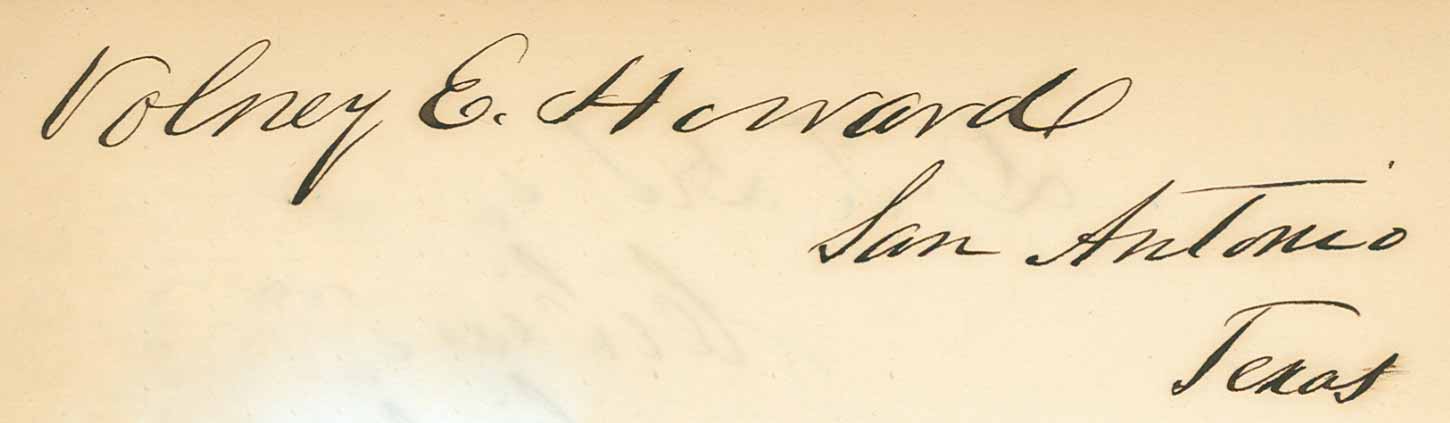 Volney E. Howard
San Antonio
Texas